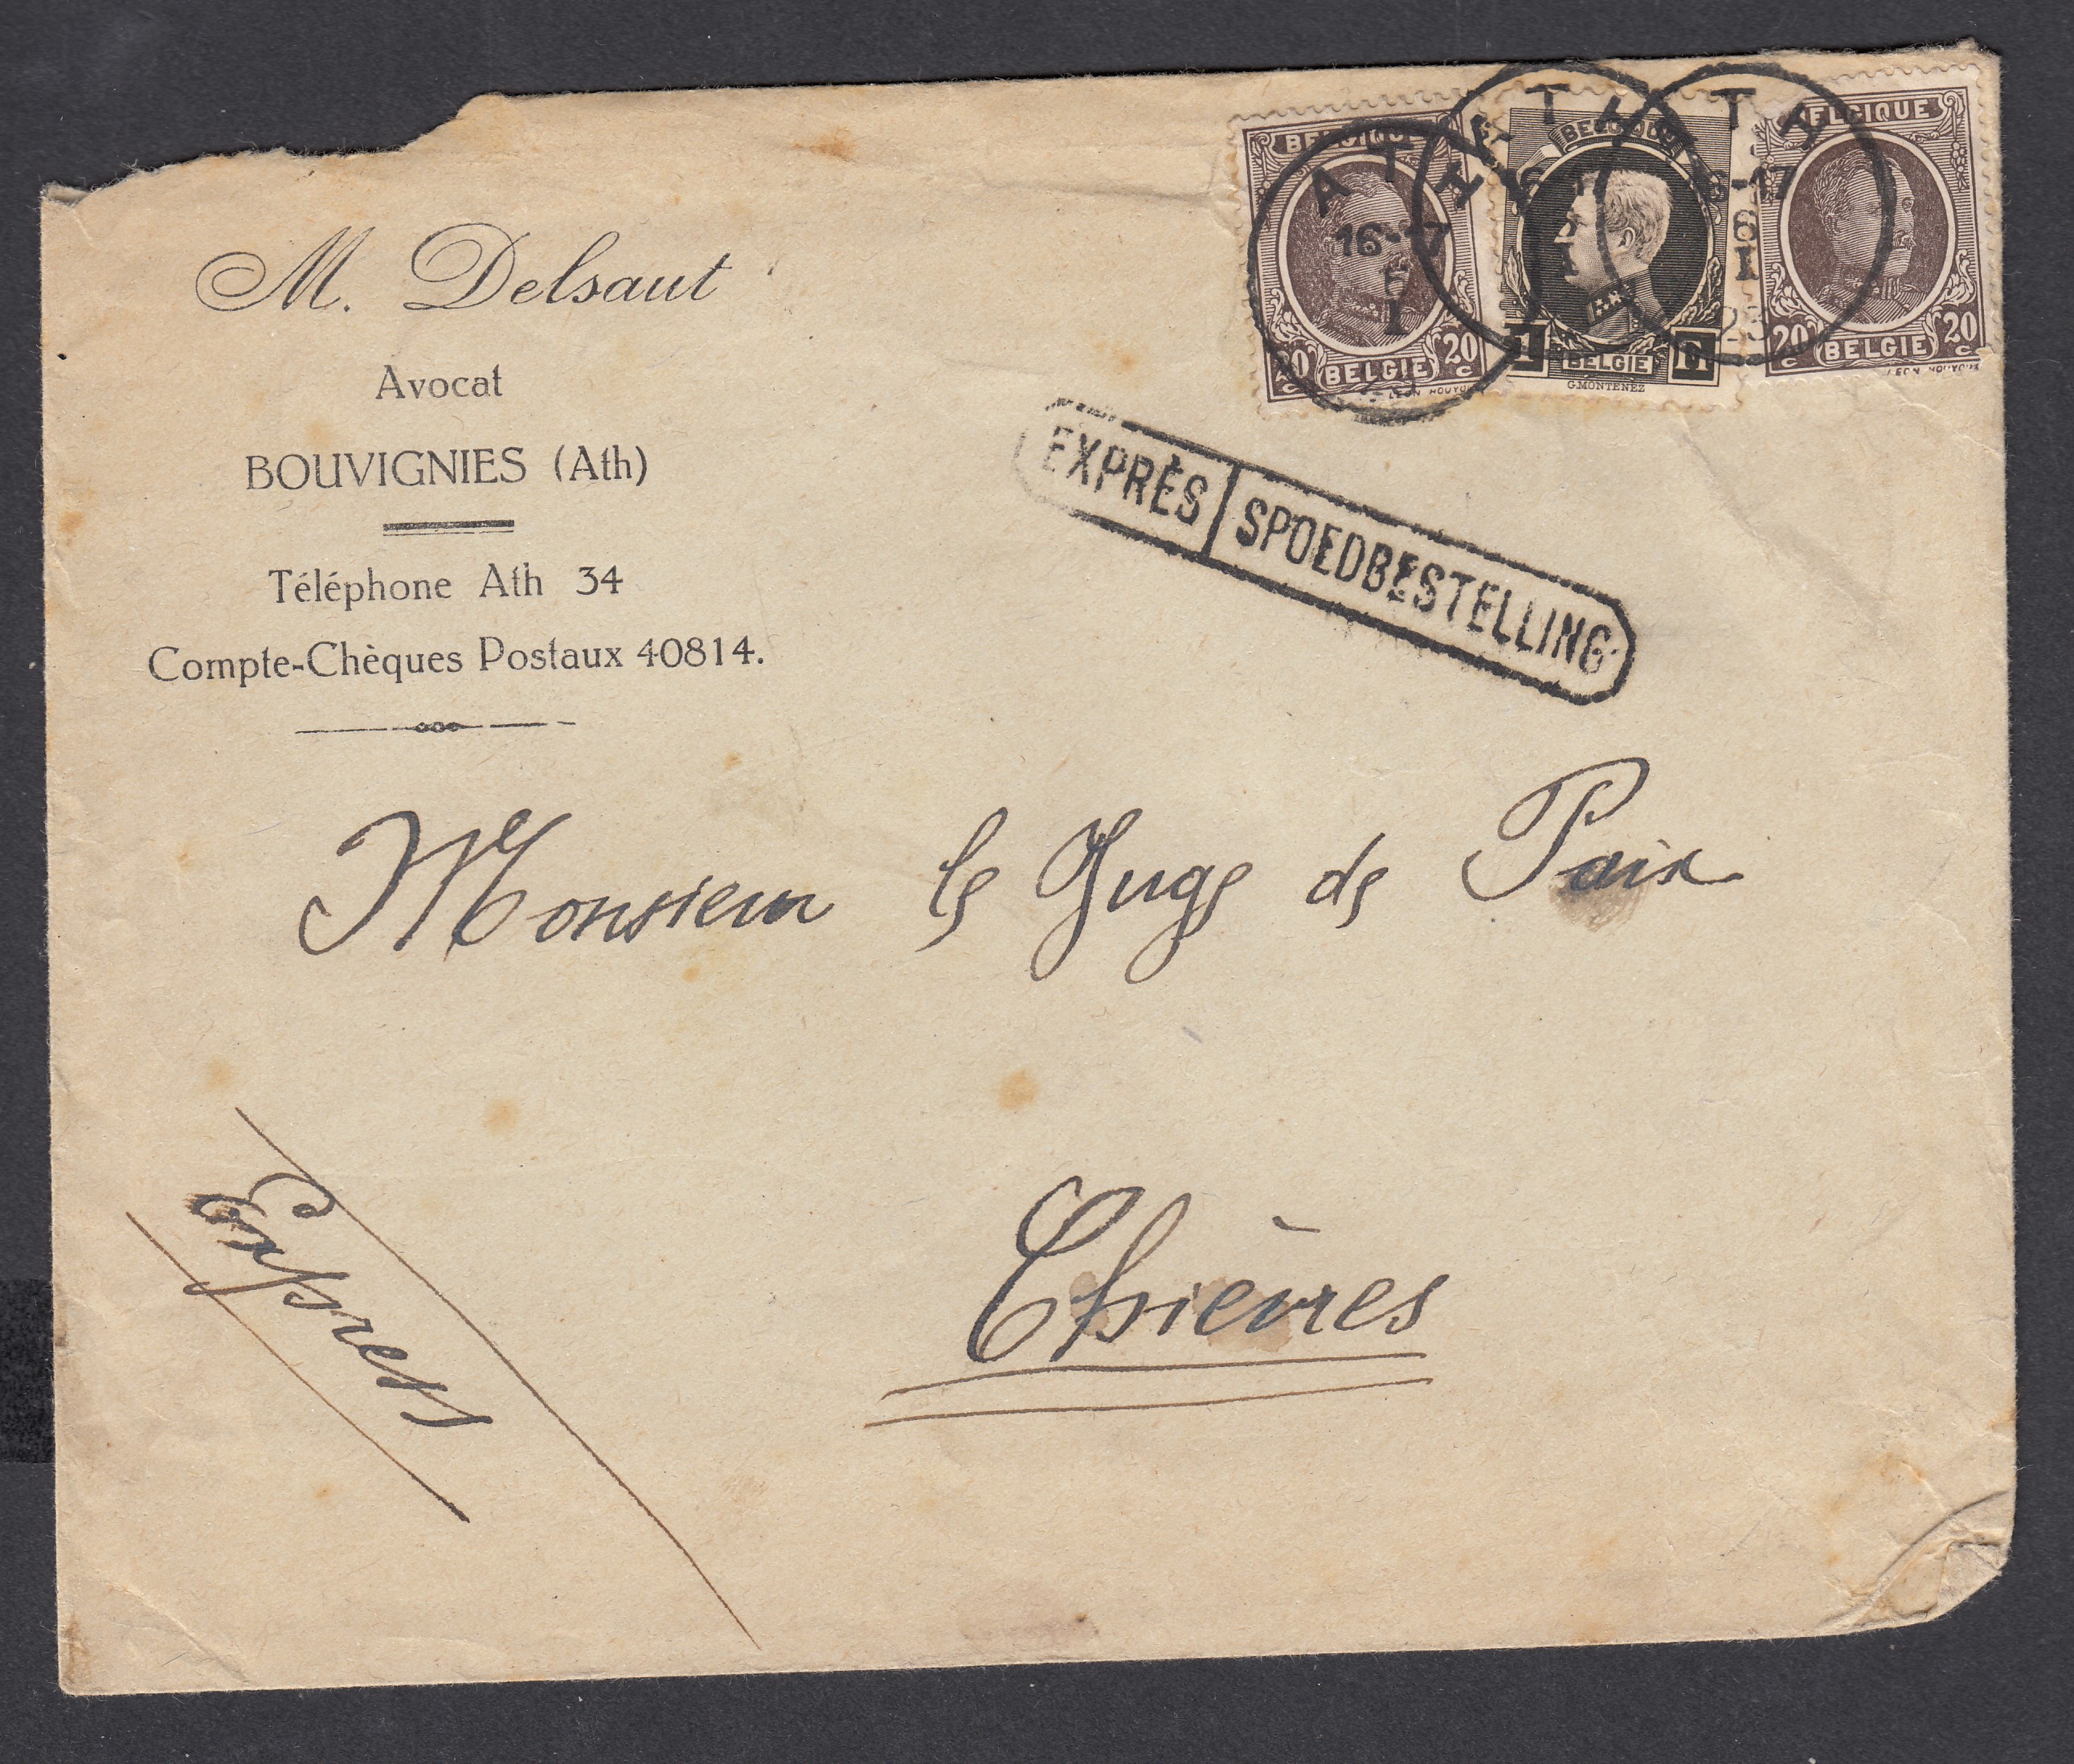 M. Delsaut
Avocat
BOUVIGNIES (Ath)
Téléphone Ath 34
Compte-Chèques Postaux 40814.
BELGIQUE
20 c BELGIE 20 c
LEON HOUYOU
BELGIQUE
1 BELGIE Fr
G.MONTENEZ
BELGIQUE
20 c BELGIE 20 c
LEON HOUYOUX
ATH
16-17
6
I
ATH
ATH
-17
6
I
23
EXPRÈS SPOEDBESTELLING
Monsieur le Juge de Paix
Chièvres
Express